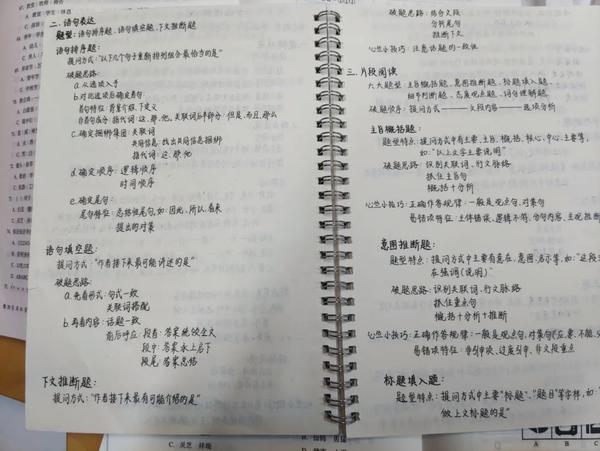 二、语句表达
题型：语句排序题、语句填空题、下文推断题
语句排序题：
提问方式："以下几个句子重新排列组合最恰当的是"
破题思路：
a.从选项入手
b.对比选项后确定首句
首句特征：背景介绍、下定义
非首句成分：指代词：这、那、他。关联词后半部分：但是、而且、那么
c.确定捆绑集团：关联词
共同信息：找出共同信息捆绑
指代词：这、那、他
d.确定顺序：逻辑顺序
时间顺序
e.确定尾句：
尾句特征：总结性尾句，如：因此、所以、看来
提出的对策
语句填空题：
提问方式："作者接下来最可能讲述的是"
破题思路：
a.先看形式：句式一致
关联词搭配
b.再看内容：话题一致
前后呼应：段首：答案统领全文
段中：答案承上启下
段尾：答案总结
下文推断题：
提问方式："作者接下来最有可能介绍的是"
破题思路：结合文段
分析尾句
推断下文
心兰小技巧：注意话题的一致性
三、片段阅读
六大题型：主旨概括题、意图推断题、标题填入题、
细节判断题、态度观点题、词句理解题
破题顺序：提问方式——文段内容——选项分析
主旨概括题：
题型特点：提问方式中有主要、主旨、概括、核心、中心、主要等，
如："以上文字主要说明"
破题思路：识别关联词、行文脉络
抓住主旨句
概括+分析
心兰小技巧：正确答案规律：一般是观点句、对策句
易错项特征：主体错误、逻辑不符、分句内容、主观推断
意图推断题：
题型特点：提问方式中主要有意在、意图、启示等，如："这段
在强调（说明）"
破题思路：识别关联词、行文脉络
抓住重点句
概括+分析+推断
心兰小技巧：正确答案规律：一般是观点句，对策句（应、要、不能、
易错项特征：过度引申、非文段重点
标题填入题：
题型特点：提问方式中主要"标题"、"题目"等字样，如：
做上文标题的是"
C. 灵芝 祥瑞
A B C